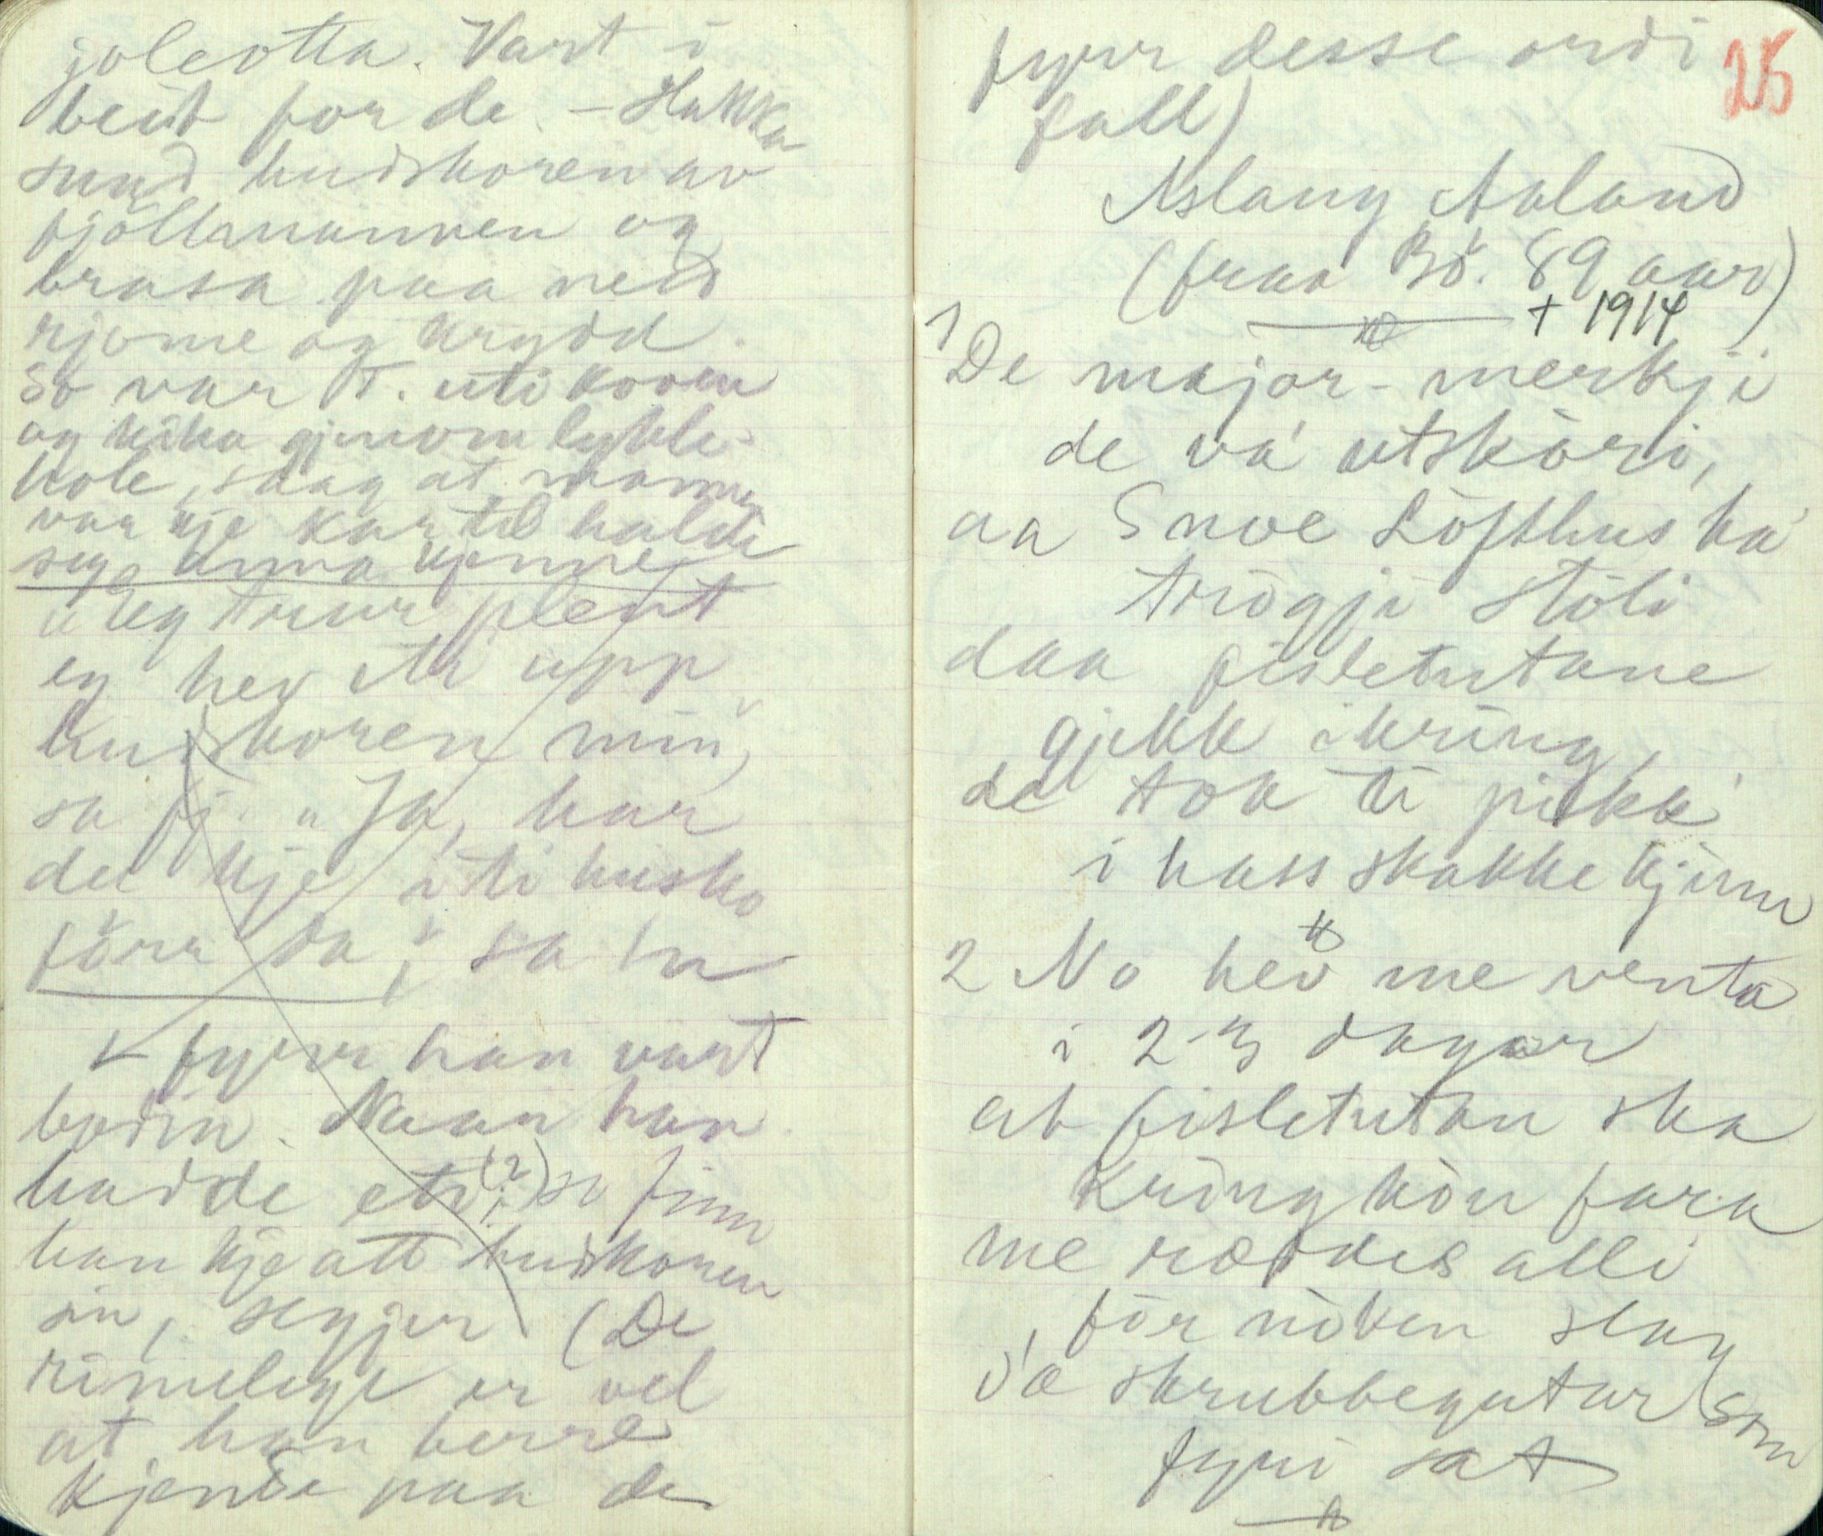 joleotta. Vart i
beit for de. – Hakka
sund hudskoren av
fjöllmannen og
brasa paa med
rjome og krydd.
So var T. uti koven
og kika gjenom lykle-
hole, saag at mannen
var kje kar til halde
seg
"eg trur plent
eg hev eti upp
hudskoren min,
sa fj. "Ja, har
du kje eti husko
förr da", sa hu
fyrr han vart
bodin. Naar han
hadde eti(?) so finn
han kje att hudskoren
sin, segjer (De
rimelege er vel
at han berre
kjende paa de
fyrr desse ordi
fall)
25
Aslaug Aaland
(fraa Bö. 89 aar)
+ 1914
1 De major-merkji
de va utsköri,
aa Snoe Löfthus ha
trögji stöli
daa fisletutane
gjekk ikring,
de tok ti pikke
i hass skakke kjinn
2 No hev me venta
i 2-3 dagar
at fisletutan ska
kring kön fara
me ræddes alli
för nöken slag
dæ skrubbegutar som
fyri sat